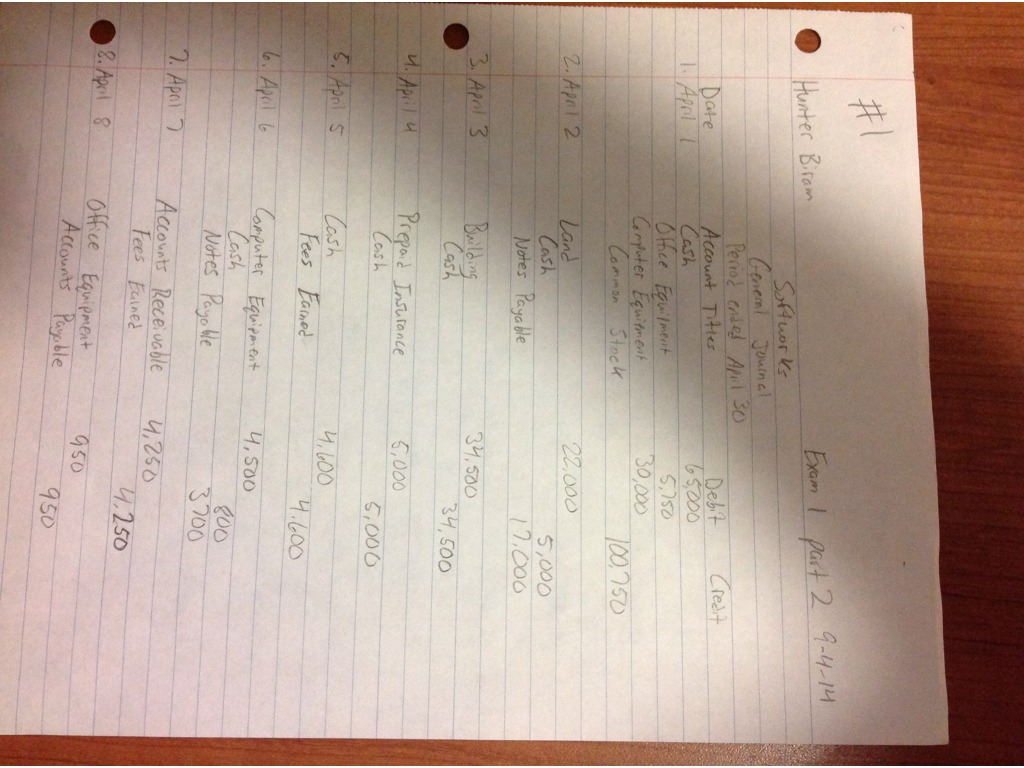 #1
Hunter Biram Exam 1 part 2 9-4-14
Softworks
General Journal
Period ended April 30
Date Account Titles Debit Credit
1. April 1 Cash 65,000
Office Equipment 5,750
Computer Equipment 30,000
Common Stock 100,750
2. April 2 Land 22,000
Cash 5,000
Notes Payable 17,000
3. April 3 Building 34,500
Cash 34,500
4. April 4 Prepaid Insurance 5,000
Cash 5,000
5. April 5 Cash 4,600
Fees Earned 4,600
6. April 6 Computer Equipment 4,500
Cash 800
Notes Payable 3700
7. April 7 Accounts Receivable 4,250
Fees Earned 4,250
8. April 8 Office Equipment 950
Accounts Payable 950